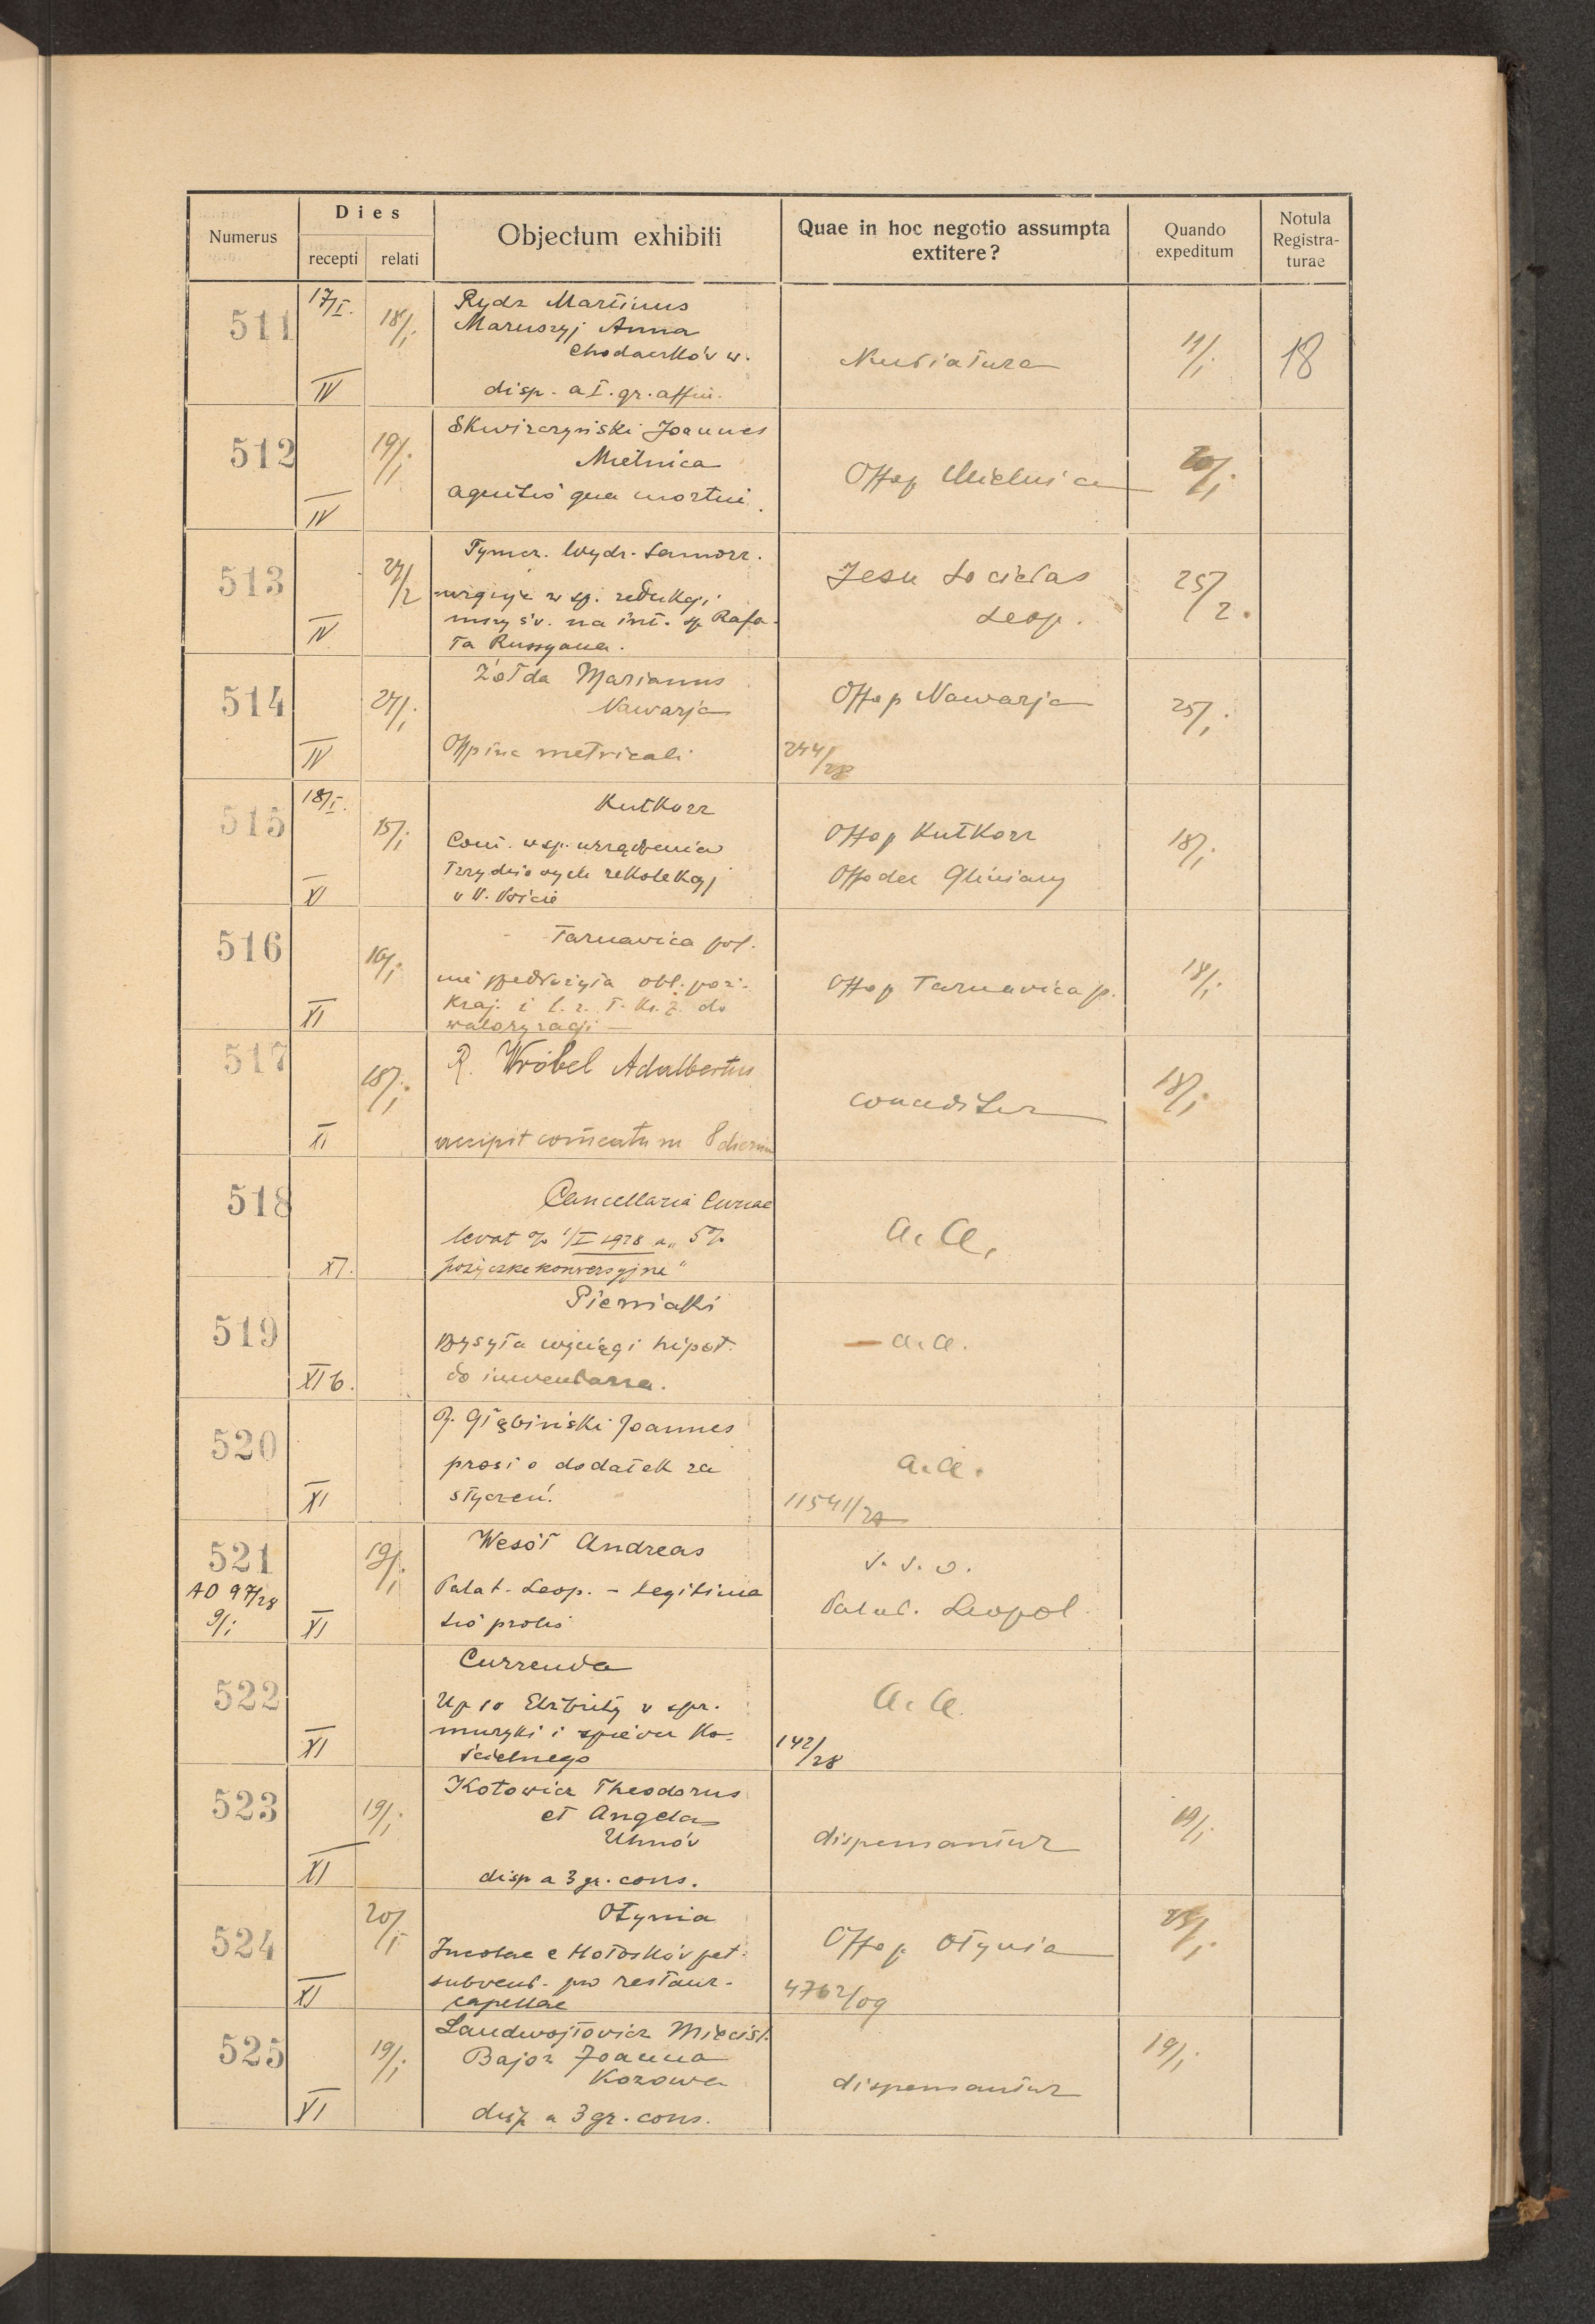 Numerus
Dies
recepti
relati
Objectum exhibiti
Quae in hoc negotio assumpta
extitere?
Quando
expeditum
Notula
Registra-
turae
511
17/I.
IV
18/i
Rydz Martinus
Maruszyj Anna
Chodaczków w.
disp. a I. gr. affin.
Nuntiatura
18
512
IV
19/i
Skwirczyński Joannes
Mielnica
agnitió qua mortui
Offop Mielnica
20/i
513
IV
24/2
Tymcz. Wydz. Samorz.
w sp. redukcji
mszy św. na int. sp Rafa-
ła Russyana.
Jesu Societas
Leop.
25/2.
514
IV
24/i
Żołda Marianus
Nawarja
metricali
Offop Nawarja
244/28
25/i
515
18/I.
XI
15/i
Kutkorz
Com. w sp. urządzenia
Trzydniowych rekolekcyj
Offop Kutkorz
Offodec Gliniany
18/i
516
XI
16/i
Tarnavica pol.
nie przedłożyła obl. poż.
Kraj. i l. z. T. kr. z. do
waloryzacji
Offop Tarnavica p.
18/i
517
XI
18/i
R. Wróbel Adalbertus
accipit comeatum 8 dierum
conceditur
18/i
518
XI.
Cancellaria Curiae
levat % 1/I 1928 a „5%
pożyczke konwersyjne"
a. a.
519
XI b.
Pieniaki
Wysyła wyciągi hipot.
do inwentarza.
a. a.
520
XI
R. Głębiński Joannes
prosi o dodatek za
styczeń.
a. a.
11541/27
521
AD 97/28
9/i
XI
19/i
Wesół Andreas
Palat. Leop. - legitima
tió prolis
s. s. o.
Palat. Leopol.
522
XI
Currenda
Up 10 Elżbiety w spr.
muzyki i śpiewu Ko-
ścielnego
a. a.
142/28
523
XI
19/i
Kotowicz Theodorus
et Angela
Uhnów
disp a 3 gr. cons.
dispensantur
19/i
524
XI
20/I
Otynia
Incolae e Hołosków pet.
subvent. pro restaur.
capellae
Offop Otynia
4762/09
525
XI
19/i
Landwojtowicz Miecisl.
Bajor Joanna
Kozowa
disp a 3 gr. cons.
dispensantur
19/i